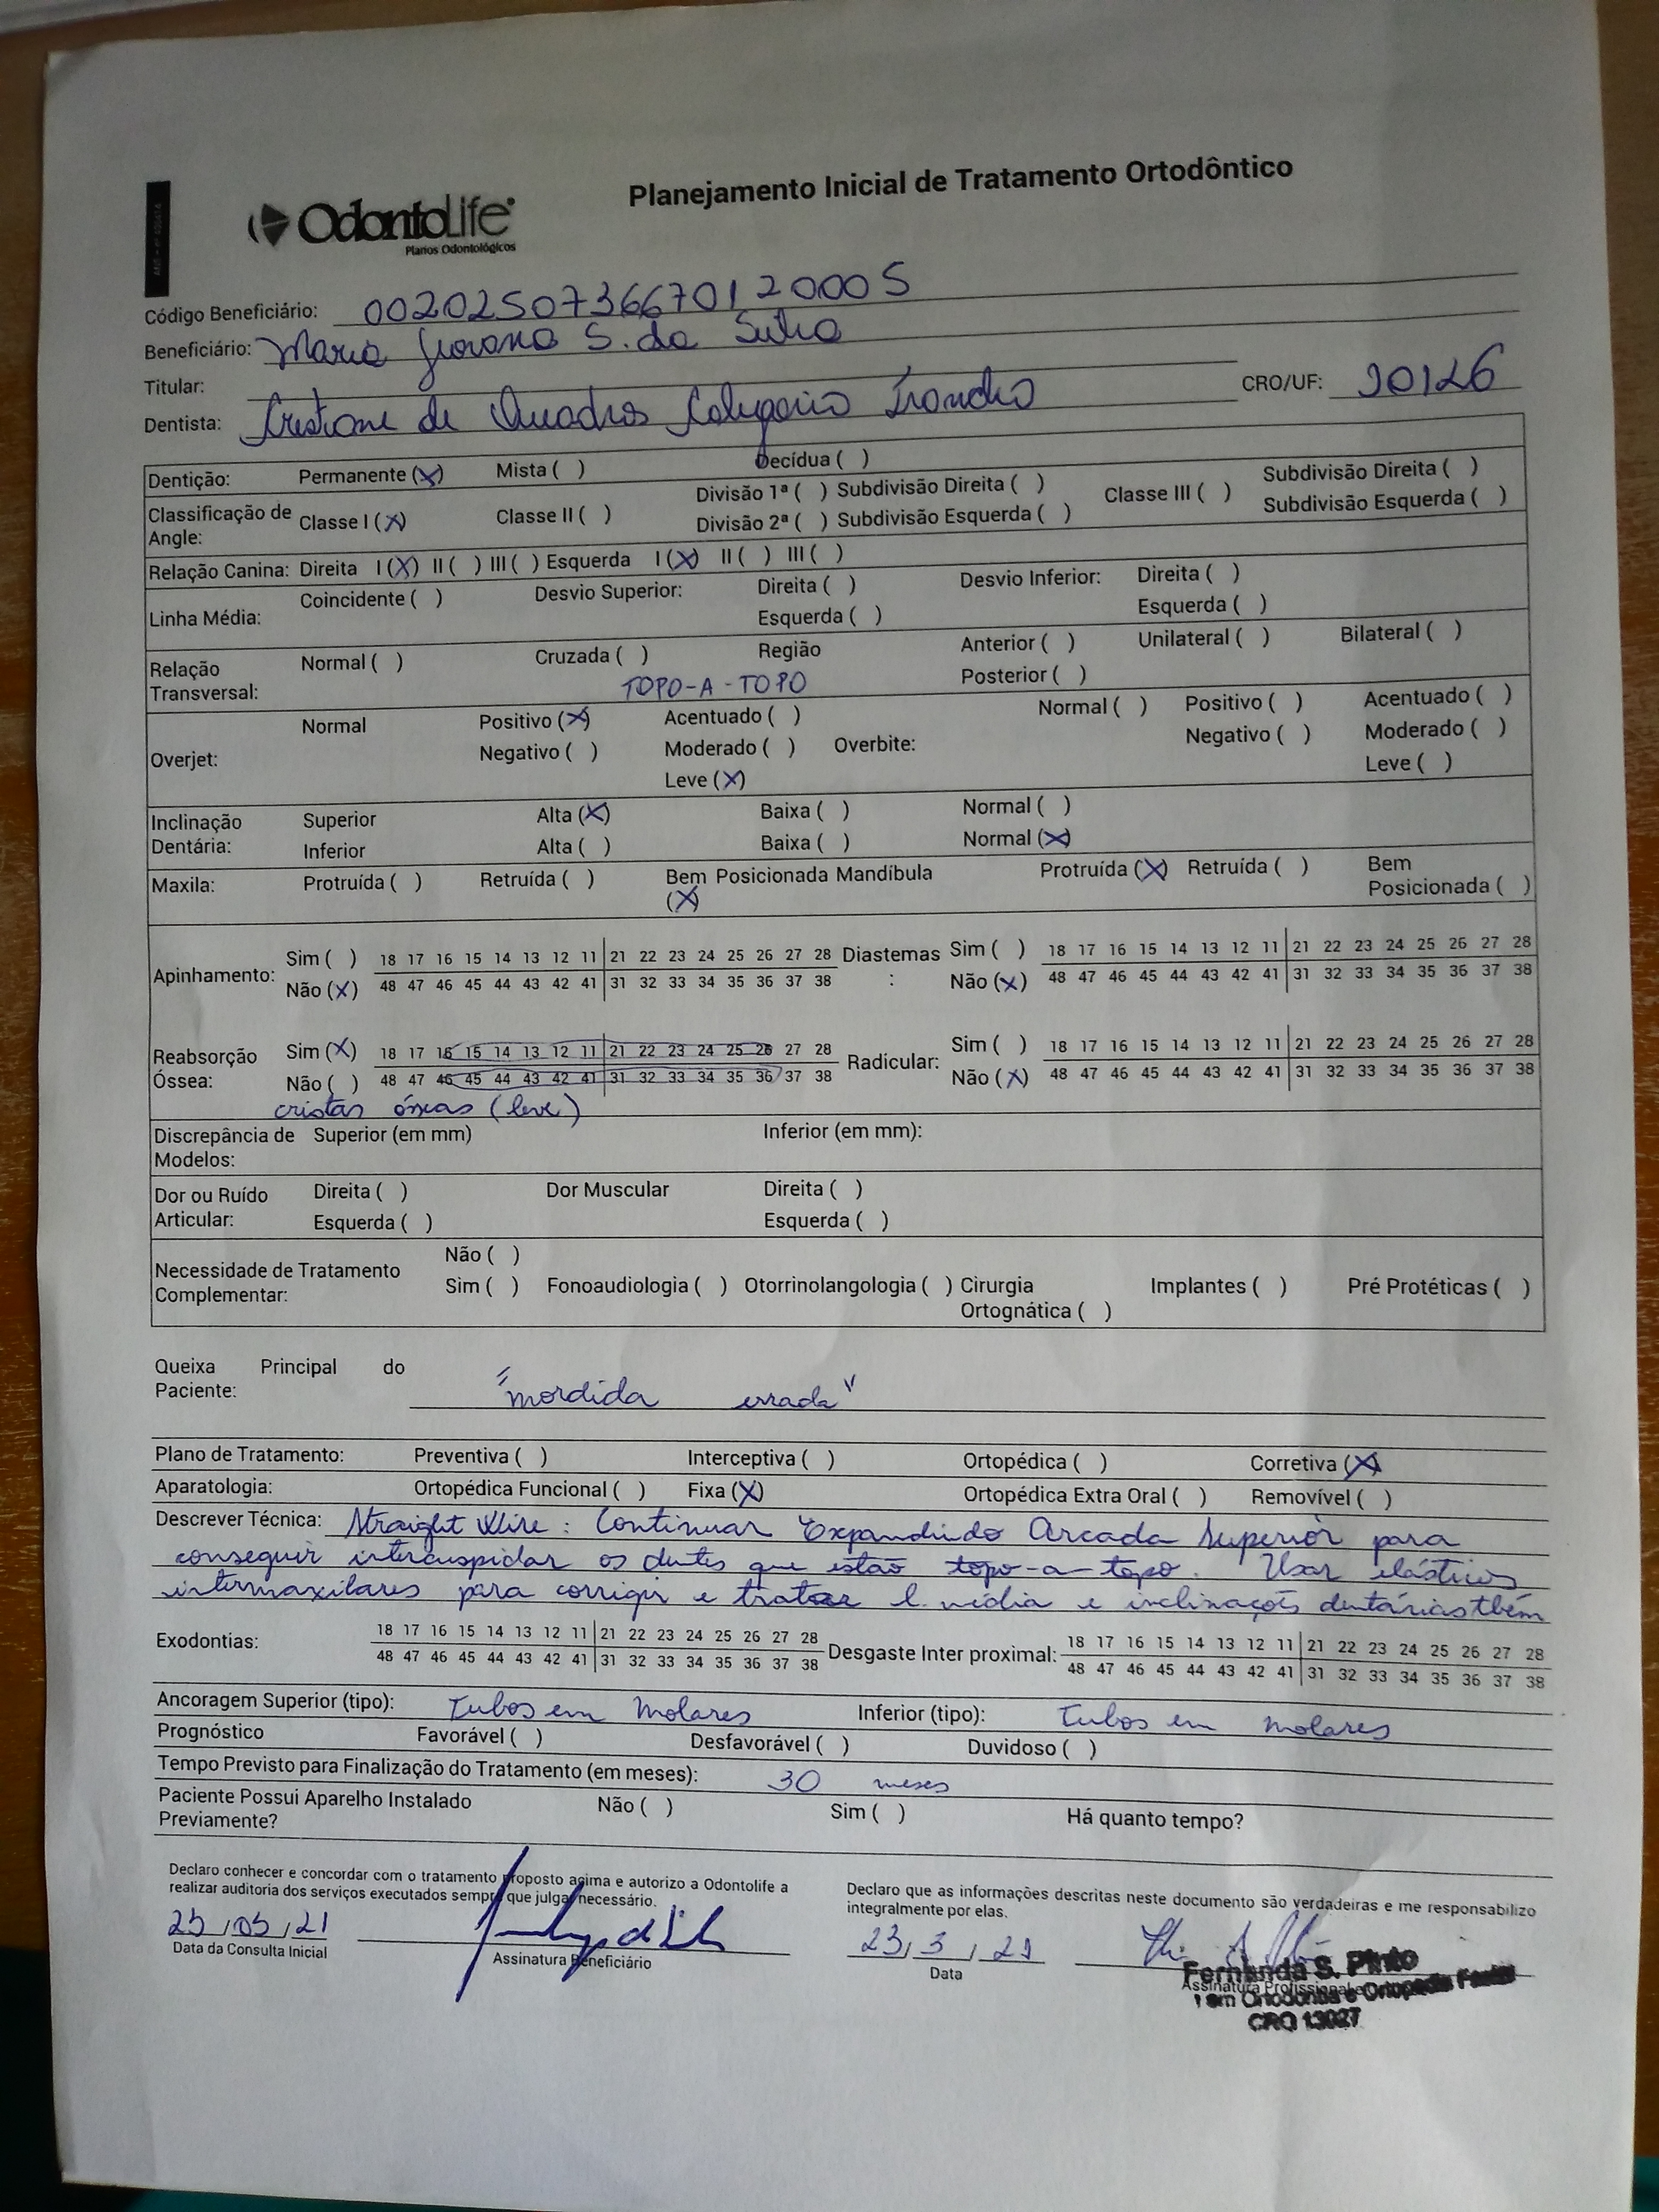 Planejamento Inicial de Tratamento Ortodôntico
OdontoLife
Planos Odontológicos
Código Beneficiário: 0020250736670120005
Beneficiário: Maria Giovana S. da Silva
Titular:
Dentista: Cristiane de Quadros CRO/UF: 20126
Dentição: Permanente (X) Mista ( ) Decídua ( )
Classificação de Angle: Classe I (X) Classe II ( ) Divisão 1ª ( ) Subdivisão Direita ( ) Classe III ( ) Subdivisão Direita ( )
Divisão 2ª ( ) Subdivisão Esquerda ( ) Subdivisão Esquerda ( )
Relação Canina: Direita I (X) II ( ) III ( ) Esquerda I (X) II ( ) III ( )
Linha Média: Coincidente ( ) Desvio Superior: Direita ( ) Desvio Inferior: Direita ( )
Esquerda ( ) Esquerda ( )
Relação Transversal: Normal ( ) Cruzada ( ) Região Anterior ( ) Unilateral ( ) Bilateral ( )
TOPO-A-TOPO Posterior ( )
Overjet: Normal Positivo (X) Acentuado ( ) Overbite: Normal ( ) Positivo ( ) Acentuado ( )
Negativo ( ) Moderado ( ) Negativo ( ) Moderado ( )
Leve (X) Leve ( )
Inclinação Dentária: Superior Alta (X) Baixa ( ) Normal ( )
Inferior Alta ( ) Baixa ( ) Normal (X)
Maxila: Protruída ( ) Retruída ( ) Bem Posicionada (X) Mandíbula Protruída (X) Retruída ( ) Bem Posicionada ( )
Apinhamento: Sim ( ) 18 17 16 15 14 13 12 11 21 22 23 24 25 26 27 28 Diastemas : Sim ( ) 18 17 16 15 14 13 12 11 21 22 23 24 25 26 27 28
Não (X) 48 47 46 45 44 43 42 41 31 32 33 34 35 36 37 38 Não (X) 48 47 46 45 44 43 42 41 31 32 33 34 35 36 37 38
Reabsorção Óssea: Sim (X) 18 17 16 15 14 13 12 11 21 22 23 24 25 26 27 28 Radicular: Sim ( ) 18 17 16 15 14 13 12 11 21 22 23 24 25 26 27 28
Não ( ) 48 47 46 45 44 43 42 41 31 32 33 34 35 36 37 38 Não (X) 48 47 46 45 44 43 42 41 31 32 33 34 35 36 37 38
cristas ósseas (leve)
Discrepância de Modelos: Superior (em mm) Inferior (em mm):
Dor ou Ruído Articular: Direita ( ) Dor Muscular Direita ( )
Esquerda ( ) Esquerda ( )
Necessidade de Tratamento Complementar: Não ( )
Sim ( ) Fonoaudiologia ( ) Otorrinolangologia ( ) Cirurgia Ortognática ( ) Implantes ( ) Pré Protéticas ( )
Queixa Principal do Paciente: "mordida errada"
Plano de Tratamento: Preventiva ( ) Interceptiva ( ) Ortopédica ( ) Corretiva (X)
Aparatologia: Ortopédica Funcional ( ) Fixa (X) Ortopédica Extra Oral ( ) Removível ( )
Descrever Técnica: Straight Wire: Continuar Expandindo Arcada Superior para
conseguir intercuspidar os dentes que estão topo-a-topo. Usar elásticos
intermaxilares para corrigir e tratar l. média e inclinações dentárias tbém
Exodontias: 18 17 16 15 14 13 12 11 21 22 23 24 25 26 27 28 Desgaste Inter proximal: 18 17 16 15 14 13 12 11 21 22 23 24 25 26 27 28
48 47 46 45 44 43 42 41 31 32 33 34 35 36 37 38 48 47 46 45 44 43 42 41 31 32 33 34 35 36 37 38
Ancoragem Superior (tipo): Tubos em Molares Inferior (tipo): Tubos em molares
Prognóstico Favorável ( ) Desfavorável ( ) Duvidoso ( )
Tempo Previsto para Finalização do Tratamento (em meses): 30 meses
Paciente Possui Aparelho Instalado Previamente? Não ( ) Sim ( ) Há quanto tempo?
Declaro conhecer e concordar com o tratamento proposto acima e autorizo a Odontolife a
realizar auditoria dos serviços executados sempre que julgar necessário.
Declaro que as informações descritas neste documento são verdadeiras e me responsabilizo
integralmente por elas.
/03/21
Data da Consulta Inicial
Assinatura Beneficiário
23/3/21
Data
Fernanda S. Pinto
Assinatura Profissional
em Ortodontia e Ortopedia Facial
CRO 13027